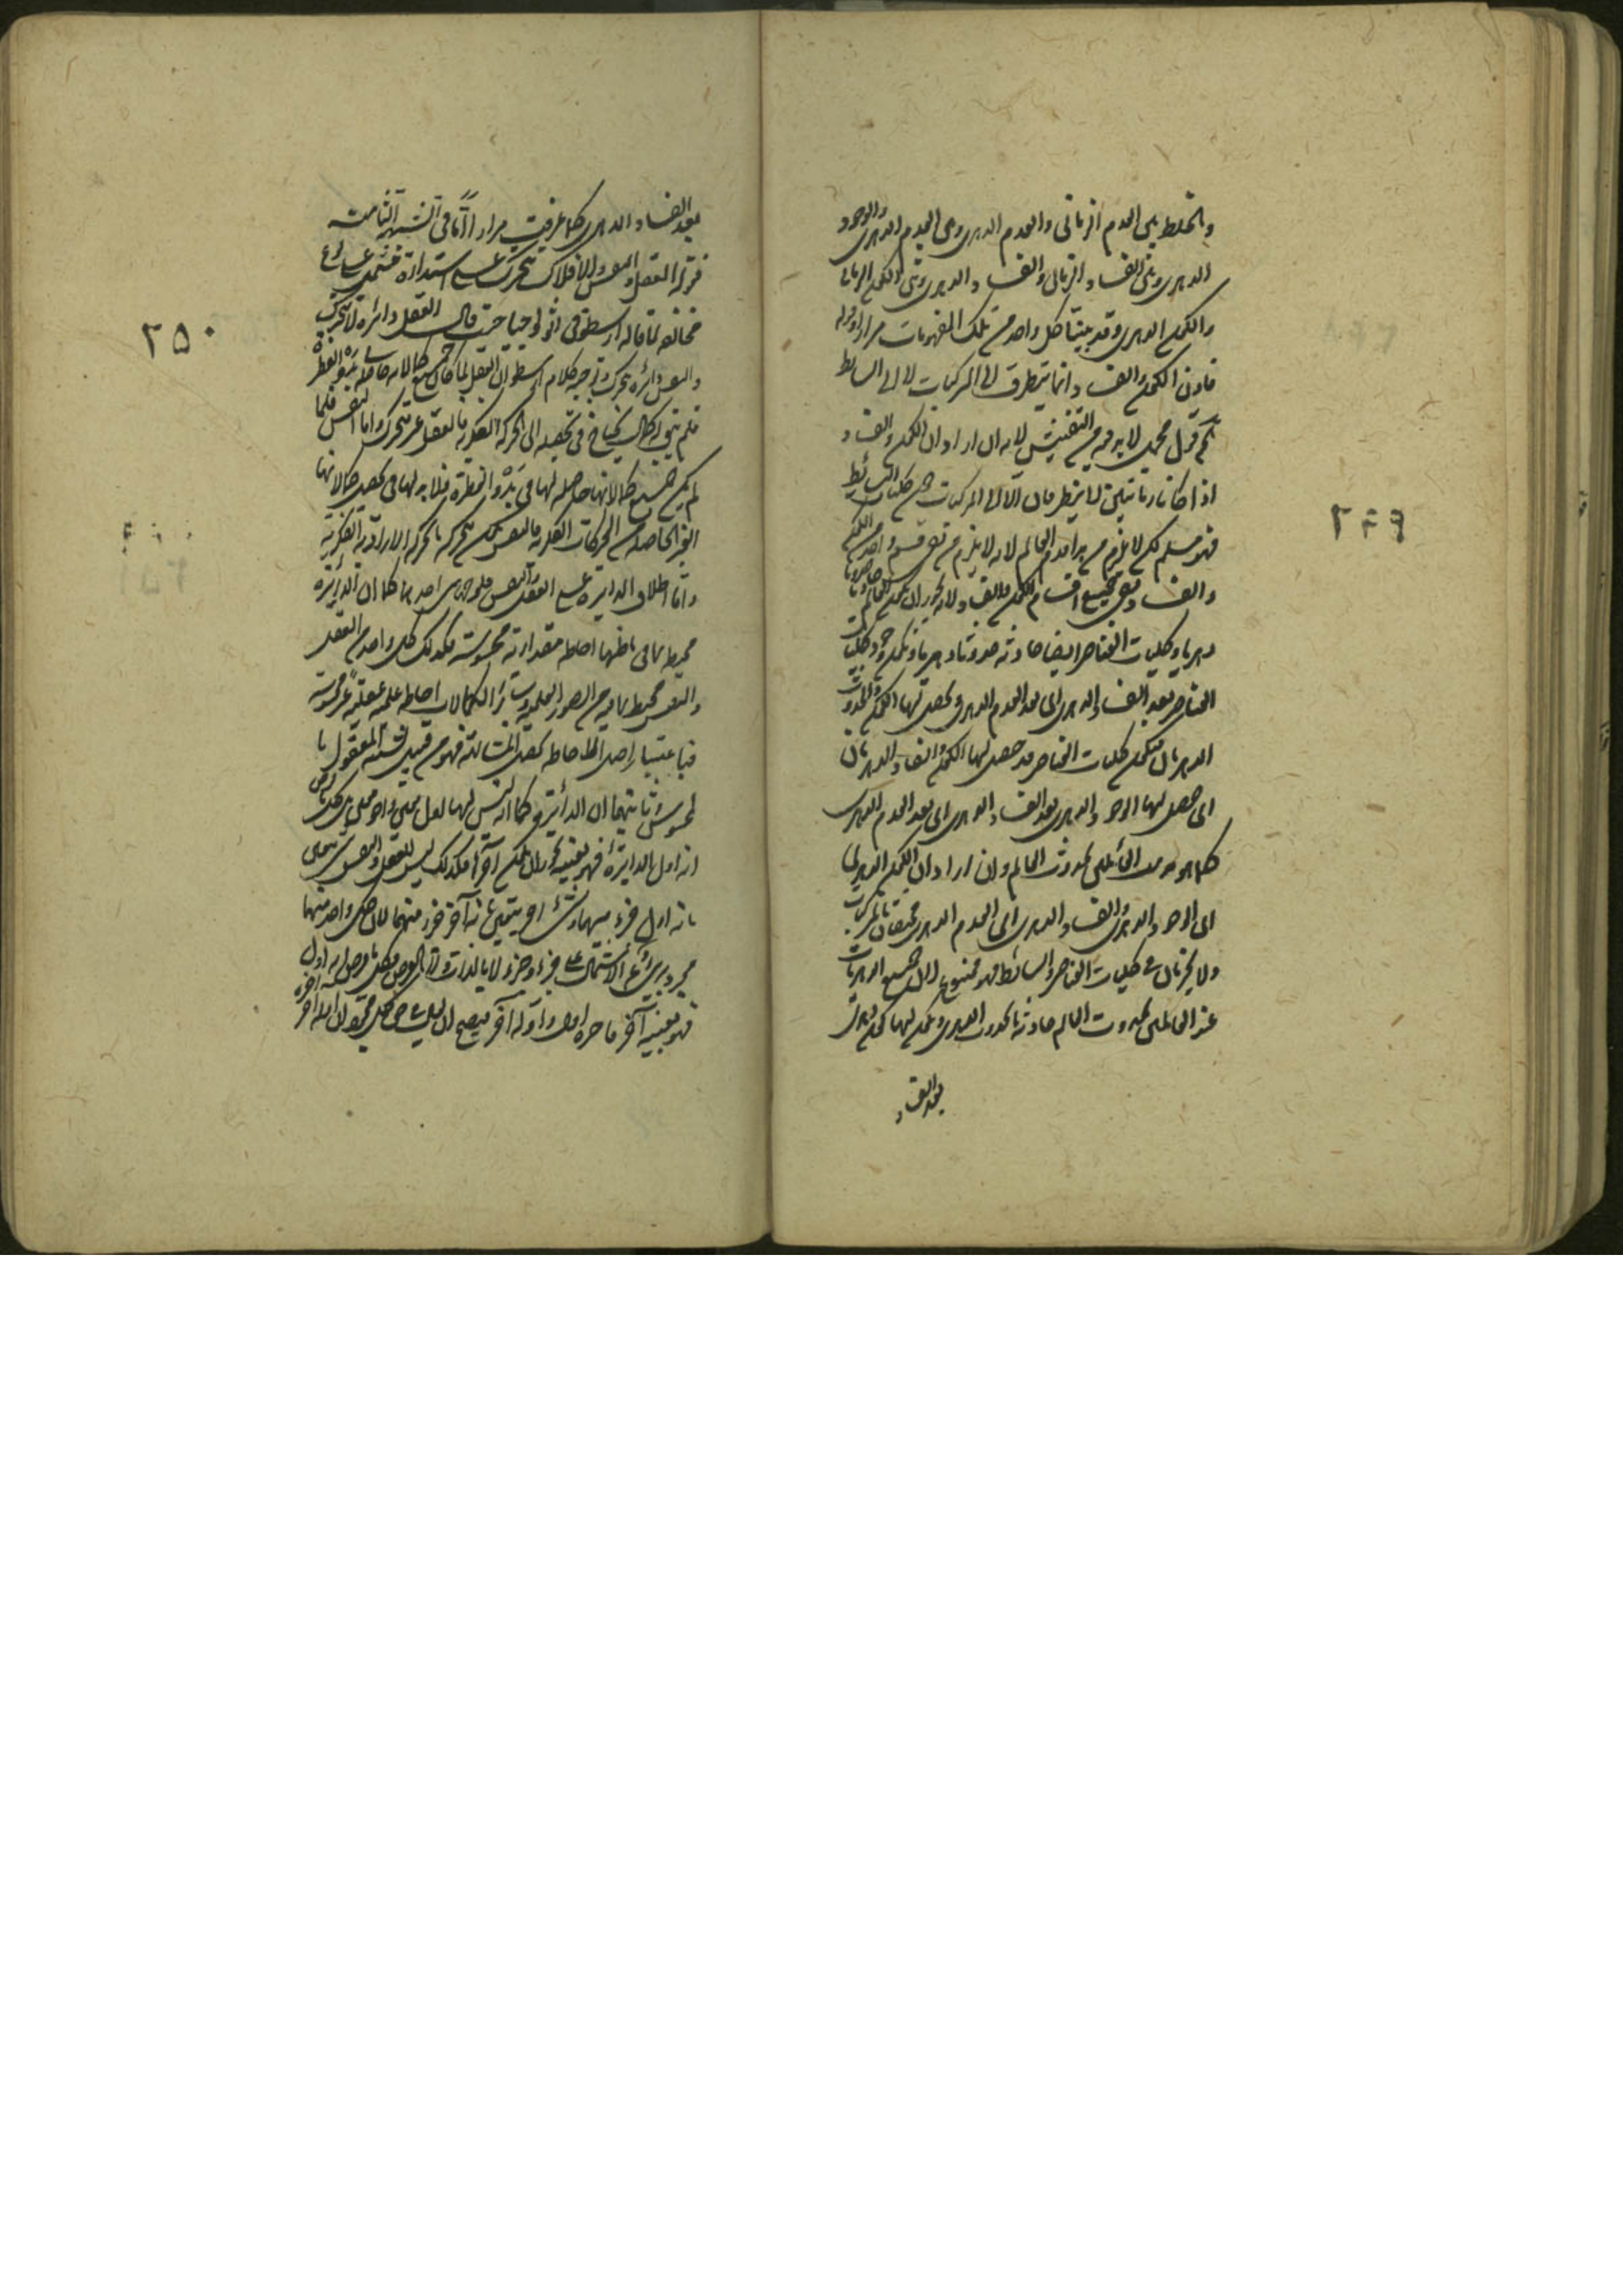 والخلط بين العدم الزماني والعدم الدهري وبين العدم الدهري والوجود
الدهري وبين الفساد الزماني والفساد الدهري وبين التكون الزماني
والتكون الدهري وقد بينا كل واحد من تلك المفهومات مرارا وقوله
فاذن التكون والفساد وانما يتطرق الى المركبات لا الى البسائط
قول لا بد فيه من التفتيش لانه ان اراد ان التكون والفساد
اذا كانا زمانيين لا يتطرقان الا الى المركبات دون كليات البسائط
فهو مسلم لكن لا يلزم منه قدم العالم لانه لا يلزم من نفي قسم واحد من التكون
والفساد نفي جميع اقسام التكون والفساد لانه يجوز ان يكون العالم حادثا
دهريا وكليات العناصر ايضا حادثة حدوثا دهريا وتكون وجود كليات
العناصر بعد الفساد الدهري اى بعد العدم الدهري ويحصل لها التكون والحدوث
الدهريان فتكون كليات العناصر قد حصل لها التكون والفساد الدهريان
اى حصل لها الوجود الدهري بعد الفساد الدهري اى بعد العدم الدهري
كما هو مذهب القائلين بحدوث العالم وان اراد ان التكون الدهري
اى الوجود الدهري والفساد الدهري اى العدم الدهري مختصان بالمركبات
ولا يجريان في كليات العناصر والبسائط فهو ممنوع لان جميع الدهريات
عند القائلين بحدوث العالم حادثة بالحدوث الدهري وتكون لها تكون دهري
بعد الفساد
٢٤٩
بعد الفساد الدهري كما عرفت مرارا واما في الشبهة الثامنة
قوله العقل والنفس والافلاك يتحرك على استدارة
مخالف لما قاله ارسطو في اثولوجيا حيث قال العقل دائرة لا تتحرك
والنفس دائرة تتحرك وتوجيه كلام ارسطو ان العقل لما كان جميع كمالاته حاصلة في بدو الفطرة
فلم يبق له كمال يحتاج في تحصيله الى الحركة الفكرية فالعقل غير متحرك واما النفس فلما
لم يكن جميع كمالاتها حاصلة لها في بدو الفطرة فلا بد لها في تحصيل كمالاتها
الغير الحاصلة من الحركات الفكرية فالنفس تكون متحركة بالحركة الارادية الفكرية
واما اطلاق الدائرة على العقل والنفس احدهما كما ان الدائرة
محيط بما في باطنها احاطة مقدارية محسوسة فكذلك كل واحد من العقل
والنفس محيط بما فيه من الصور العلمية وسائر الكمالات احاطة علمية عقلية غير محسوسة
فباعتبار اصل الاحاطة تحصل المشابهة فهو من قبيل تشبيه المعقول با
لمحسوس وثانيهما ان الدائرة كما انه ليس لها اول معين واخر معين بل كل ما يفرض
انه اول الدائرة فهو بعينه يجوز ان يكون آخرا فكذلك ليس للعقل والنفس شيء يتعين
بانه اول جزء منهما وشيء اخر يتعين بانه آخر جزء منهما لان كل واحد منهما
مجرد بريء عن الاشتمال على جزء وجزء لا بالذات ولا بالعرض فكل ما فرض انه اول
فهو بعينه آخر
٢٥٠